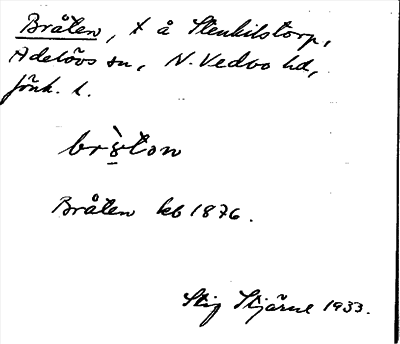 Bråten, t å Stenkilstorp,
Adelövs sn, N. Vedbo hd,
Jönk. l.
Bråten kb 1876.
Stig Stjärne 1933.